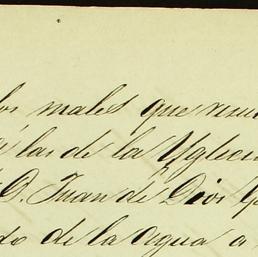 los males que resu
las de la Yglesi
D. Juan de Dios
do de la agua a